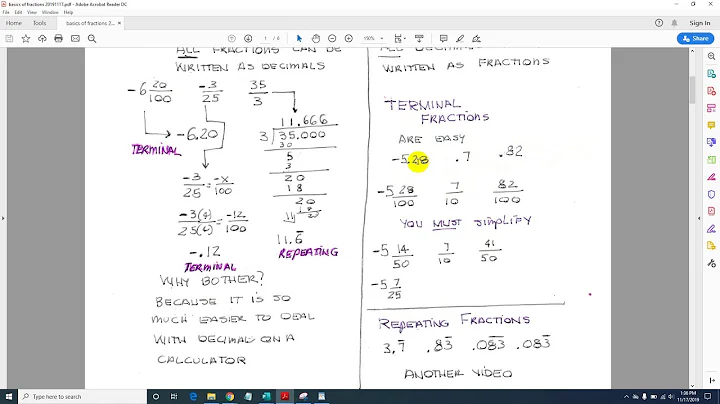 basics of fractions 20191117.pdf - Adobe Acrobat Reader DC
File Edit View Window Help
Home Tools basics of fractions 2... ×
Sign In
1 / 6
150%
Share
ALL FRACTIONS CAN BE
WRITTEN AS DECIMALS
-6 20/100 -3/25 35/3
-6.20
TERMINAL
11.666
3 35.000
30
5
3
20
18
20
-3/25 = -x/100
-3(4)/25(4) = -12/100
-.12
TERMINAL
11.6̅
REPEATING
WHY BOTHER?
BECAUSE IT IS SO
MUCH EASIER TO DEAL
WITH DECIMAL ON A
CALCULATOR
WRITTEN AS FRACTIONS
TERMINAL
FRACTIONS
ARE EASY
-5.28 .7 .82
-5 28/100 7/10 82/100
YOU MUST SIMPLIFY
-5 14/50 7/10 41/50
-5 7/25
REPEATING FRACTIONS
3.7̅ .83̅ .08̅3̅ .083̅
ANOTHER VIDEO
Type here to search
1:06 PM
11/17/2019